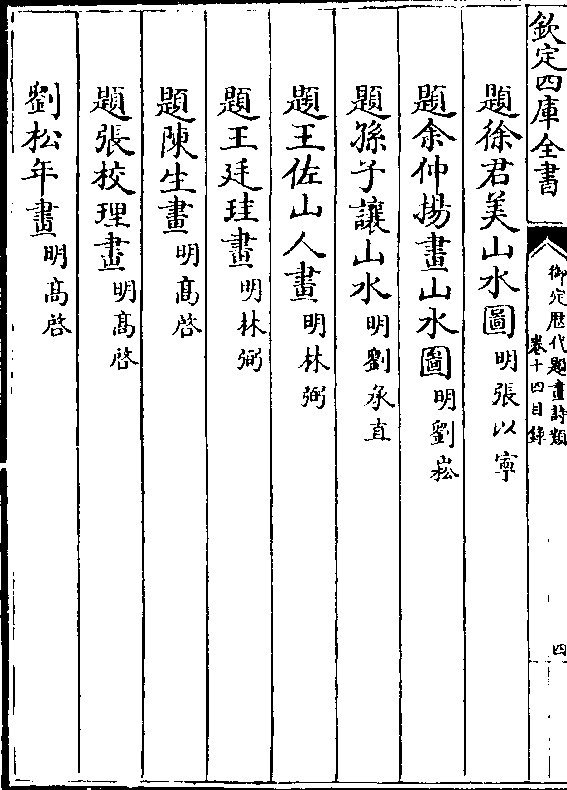 欽定四庫全書
御定歴代題畫詩類
卷十四目錄
四
題徐君美山水圖 明張以寧
題余仲揚畫山水圖 明劉崧
題孫子讓山水 明劉承直
題王佐山人畫 明林弼
題王廷珪畫 明林弼
題陳生畫 明高啓
題張校理畫 明高啓
劉松年畫 明高啓